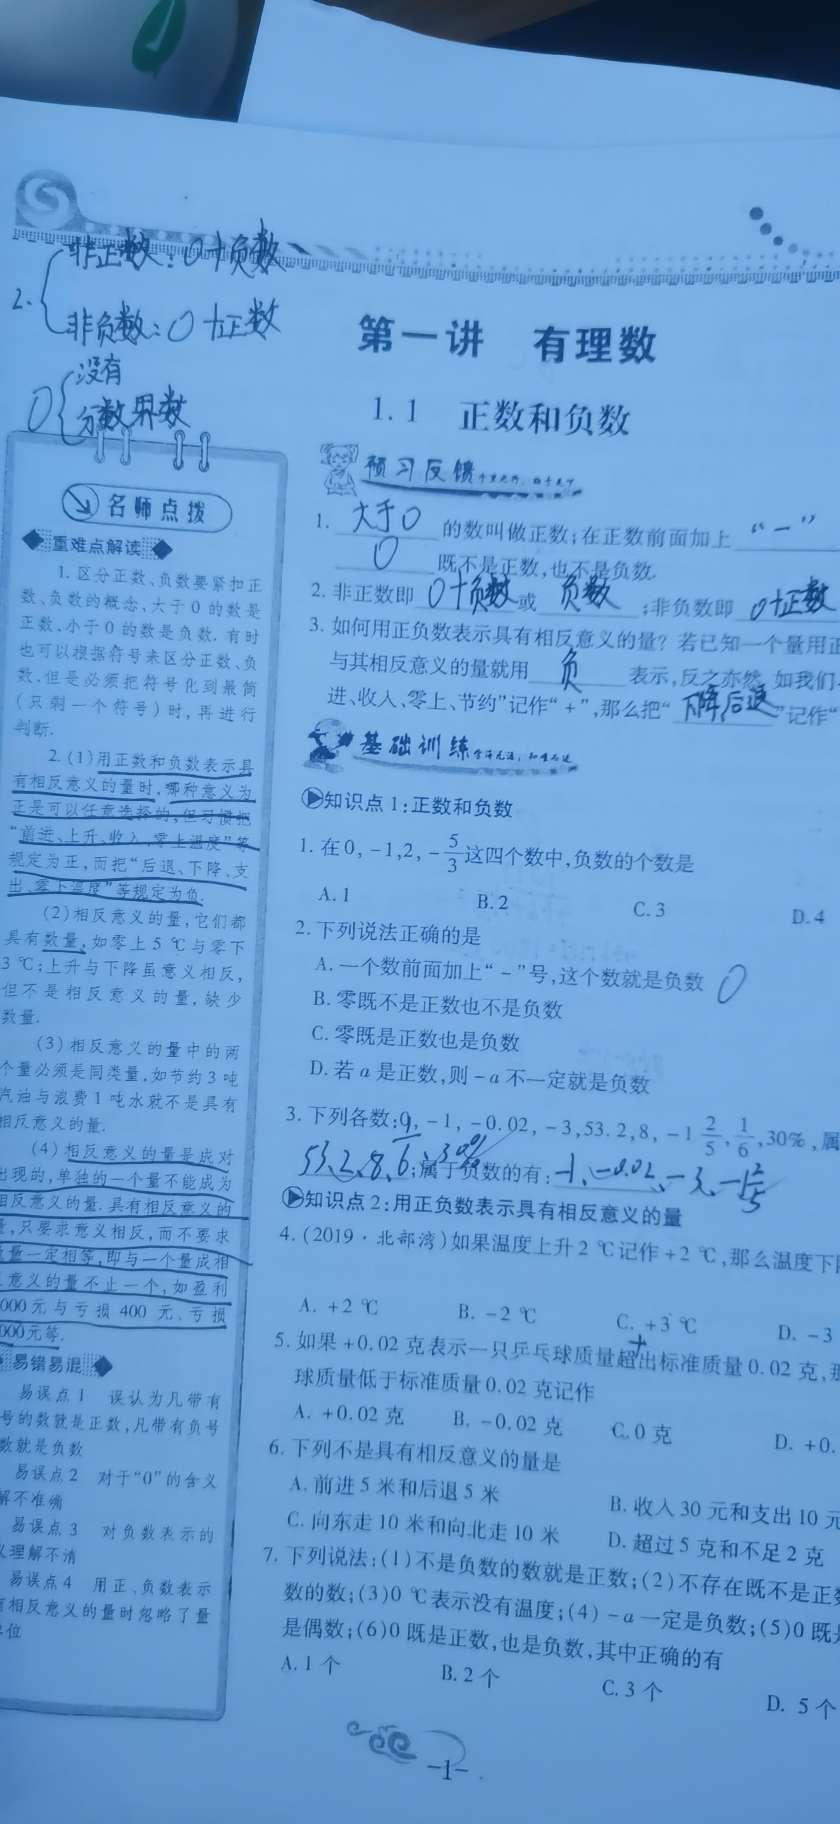 2.
非正数:0十负数
非负数:0十正数
0
没有
分数界数
第一讲 有理数
1.1 正数和负数
预习反馈
1. 大于0 的数叫做正数;在正数前面加上 “-”
0 既不是正数,也不是负数.
2. 非正数即 0十负数 或 负数 ;非负数即 0十正数
3. 如何用正负数表示具有相反意义的量? 若已知一个量用正
与其相反意义的量就用 负 表示,反之亦然. 如我们
进、收入、零上、节约”记作“+”,那么把“ 下降后退 ”记作“
基础训练
知识点1:正数和负数
1. 在0, -1,2, -5/3这四个数中,负数的个数是
A. 1 B. 2 C. 3 D. 4
2. 下列说法正确的是
A. 一个数前面加上“-”号,这个数就是负数 0
B. 零既不是正数也不是负数
C. 零既是正数也是负数
D. 若a是正数,则-a不一定就是负数
3. 下列各数:0, -1, -0.02, -3,53.2,8, -1 2/5, 1/6,30%,属
53.2、8、1/6、30% ;属于负数的有: -1、-0.02、-3、-1 2/5
知识点2:用正负数表示具有相反意义的量
4. (2019·北部湾)如果温度上升2 ℃记作+2 ℃,那么温度下
A. +2 ℃ B. -2 ℃ C. +3 ℃ D. -3
+
5. 如果+0.02克表示一只乒乓球质量超出标准质量0.02克,
球质量低于标准质量0.02克记作
A. +0.02克 B. -0.02克 C. 0克 D. +0.
6. 下列不是具有相反意义的量是
A. 前进5米和后退5米 B. 收入30元和支出10元
C. 向东走10米和向北走10米 D. 超过5克和不足2克
7. 下列说法:(1)不是负数的数就是正数;(2)不存在既不是正
数的数;(3)0 ℃表示没有温度;(4)-a一定是负数;(5)0既
是偶数;(6)0既是正数,也是负数,其中正确的有
A. 1个 B. 2个 C. 3个 D. 5个
名师点拨
重难点解读
1. 区分正数、负数要紧扣正
数、负数的概念,大于0的数是
正数,小于0的数是负数. 有时
也可以根据符号来区分正数、负
数,但是必须把符号化到最简
(只剩一个符号)时,再进行
判断.
2. (1)用正数和负数表示具
有相反意义的量时,哪种意义为
正是可以任意选择的,但习惯把
“前进、上升、收入、零上温度”等
规定为正,而把“后退、下降、支
出、零下温度”等规定为负.
(2)相反意义的量,它们都
具有数量,如零上5 ℃与零下
3 ℃;上升与下降虽意义相反,
但不是相反意义的量,缺少
数量.
(3)相反意义的量中的两
个量必须是同类量,如节约3吨
汽油与浪费1吨水就不是具有
相反意义的量.
(4)相反意义的量是成对
出现的,单独的一个量不能成为
相反意义的量. 具有相反意义的
量,只要求意义相反,而不要求
数量一定相等,即与一个量成相
反意义的量不止一个,如盈利
000元与亏损400元、亏损
000元等.
易错易混
易误点1 误认为凡带有
号的数就是正数,凡带有负号
数就是负数
易误点2 对于“0”的含义
解不准确
易误点3 对负数表示的
义理解不清
易误点4 用正、负数表示
有相反意义的量时忽略了量
单位
-1-